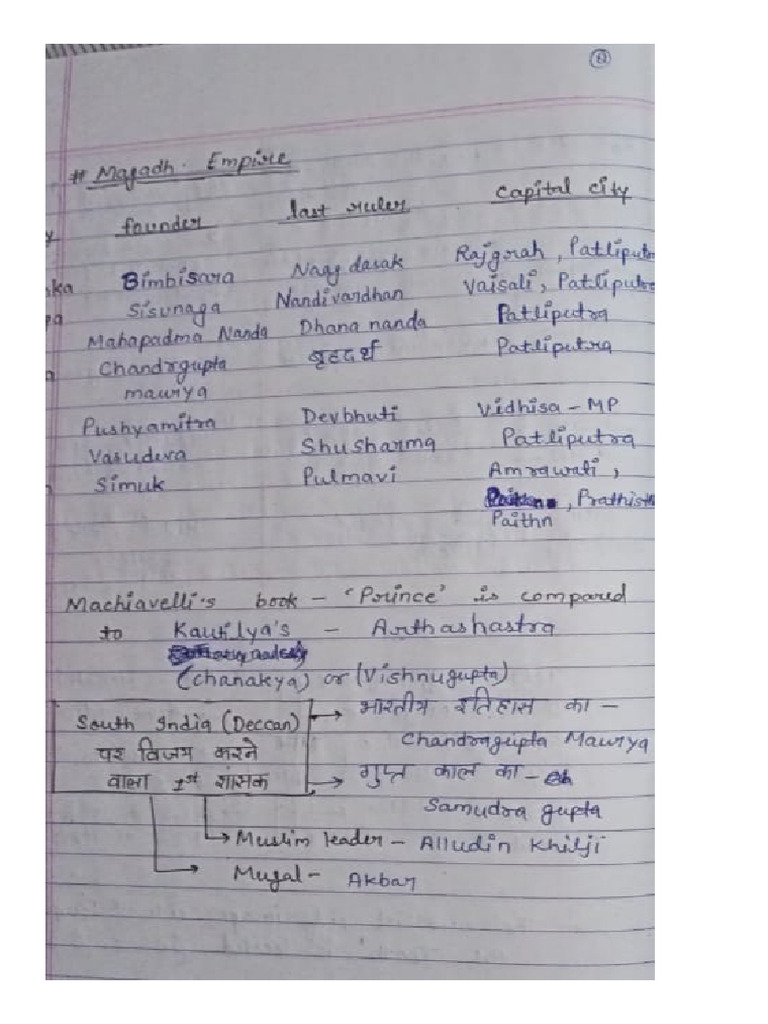 # Magadh. Empire
founder last ruler Capital city
ska Bimbisara Nagdasak Rajgrah, Patliputr
Sisunaga Nandivardhan Vaisali, Patliputra
Mahapadma Nanda Dhana nanda Patliputra
Chandrgupta बृहदर्थ Patliputra
maurya
Pushyamitra Devbhuti Vidhisa - MP
Vasudeva Shusharma Patliputra
Simuk Pulmavi Amrawati,
, Prathisth
Paithn
Machiavelli's book - 'Prince' is compared
to Kautilya's - Arthashastra
(Chanakya) or (Vishnugupta)
South India (Deccan) → भारतीय इतिहास का -
पर विजय करने Chandragupta Maurya
वाला 1st शासक → गुप्त काल का -
Samudra gupta
→ Muslim leader - Alludin Khilji
→ Mugal - Akbar